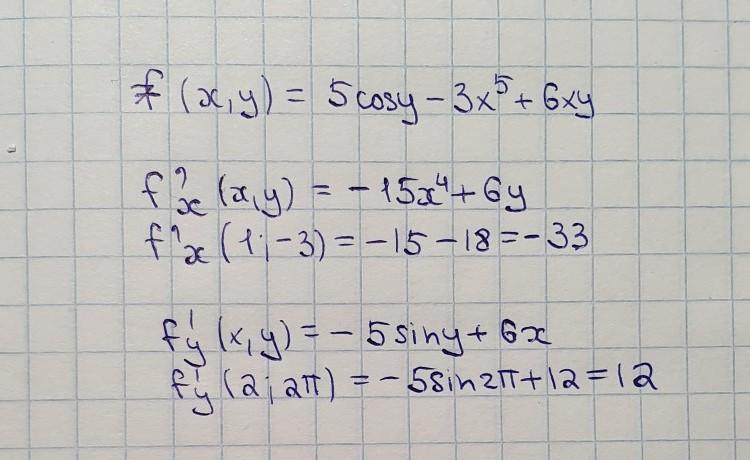 f (x,y) = 5cosy − 3x⁵ + 6xy
f'x (x,y) = −15x⁴ + 6y
f'x (1; −3) = −15 − 18 = −33
f'y (x,y) = −5siny + 6x
f'y (2; 2π) = −5sin2π + 12 = 12